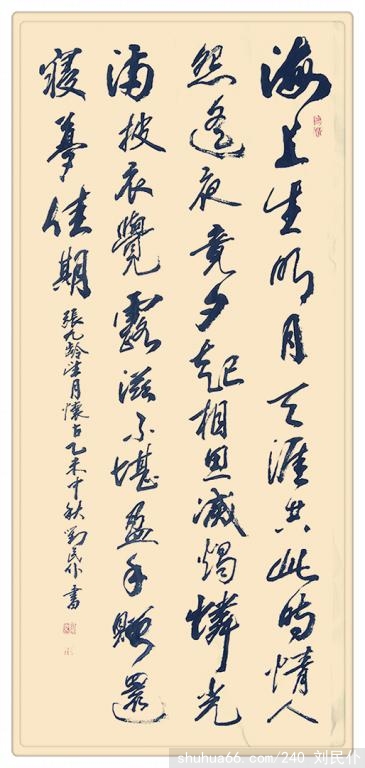 海上生明月天涯共此時情人
怨遙夜竟夕起相思滅燭憐光
滿披衣覺露滋不堪盈手贈還
寢夢佳期
張九齡望月懷古乙未中秋劉民仆書
shuhua66.com/240 刘民仆